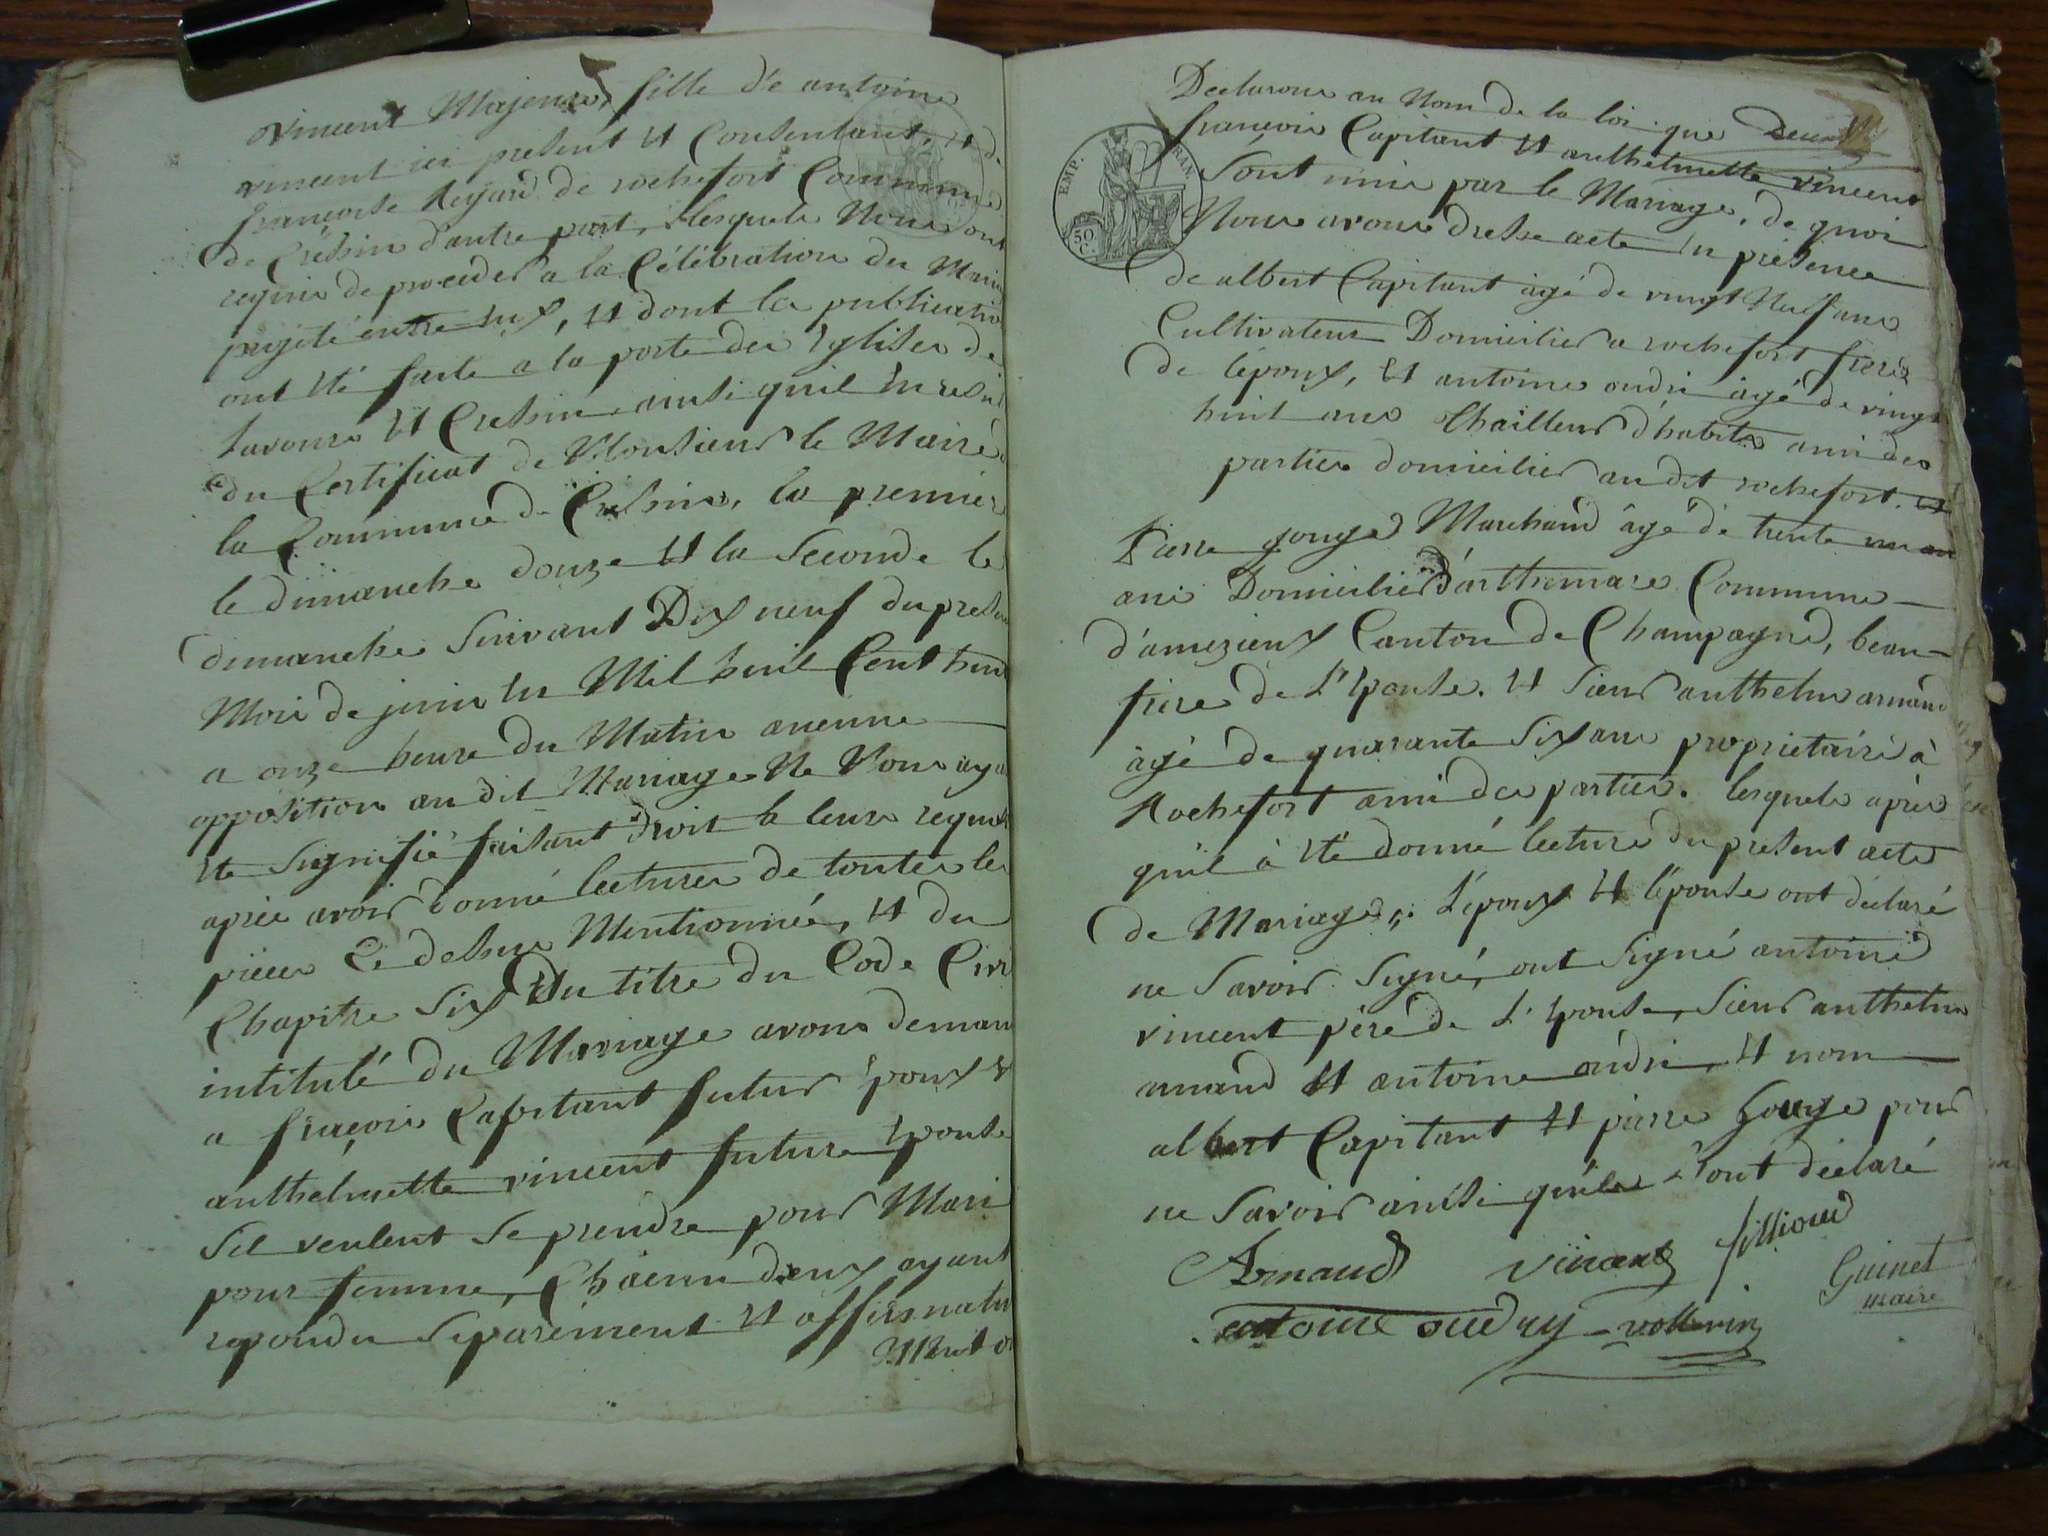 vincent Majeure, fille de antoine
vincent ici present et Consentant, et de
françoise Reyard de rochefort Commune
de Cressin d'autre part, lesquels Nous ont
requis de proceder a la Célébration du Mari
projeté entre eux, et dont les publication
ont été faite a la porte des Eglises de
Lavours et Cressin ainsi qu'il en resul
du Certificat de Monsieur le Maire
la Commune de Cressin, la premiere
le dimanche douze et la Seconde le
dimanche Suivant Dix neuf du present
Mois de juin en Mil huit Cent huit
a onze heure du Matin aucune
opposition au dit Mariage Ne Nous aya
été Signifié faisant droit a leurs requet
après avoir donné lectures de toutes les
pieces Ci dessus Mentionnée, et du
Chapitre Six Du titre du Code Civi
intitulé du Mariage avons deman
a françois Capitant futur Epoux &
anthelmette vincent future Epouse
Sil veulent Se prendre pour Mari
pour femme, Chacun deux ayant
repondu Separement et affirmativ
Ment
Declarons au Nom de la loi que
françois Capitant et anthelmette vincent
Sont unis par le Mariage, de quoi
EMP. FRAN.
50 C.
Nous avons dresse acte en présence
de albert Capitant âgé de vingt Neuf ans
Cultivateur Domicilier a rochefort frere
de l'époux, et antoine oudri âgé de vingt
huit ans thailleur d'habits ami des
parties domicilier au dit rochefort, et
Pierre gouge Marchand âgé de trente
ans Domicilier d'arthemare Commune
d'amezieux Canton de Champagne, beau
frere de L'Epouse. et Sieur anthelme armand
âgé de quarante Six ans propriétaire à
Rochefort ami des parties. lesquels après
qu'il à été donné lecture du present acte
de Mariage, L'époux et l'épouse ont déclaré
ne Savoir Signé, ont Signé antoine
vincent père de L'Epouse, Sieur anthelme
armand et antoine oudri, et non
albert Capitant et pierre Gouge pour
ne Savoir ainsi qu'ils l'ont déclaré
Armand vincent filliond
Guinet
maire
antoine oudry